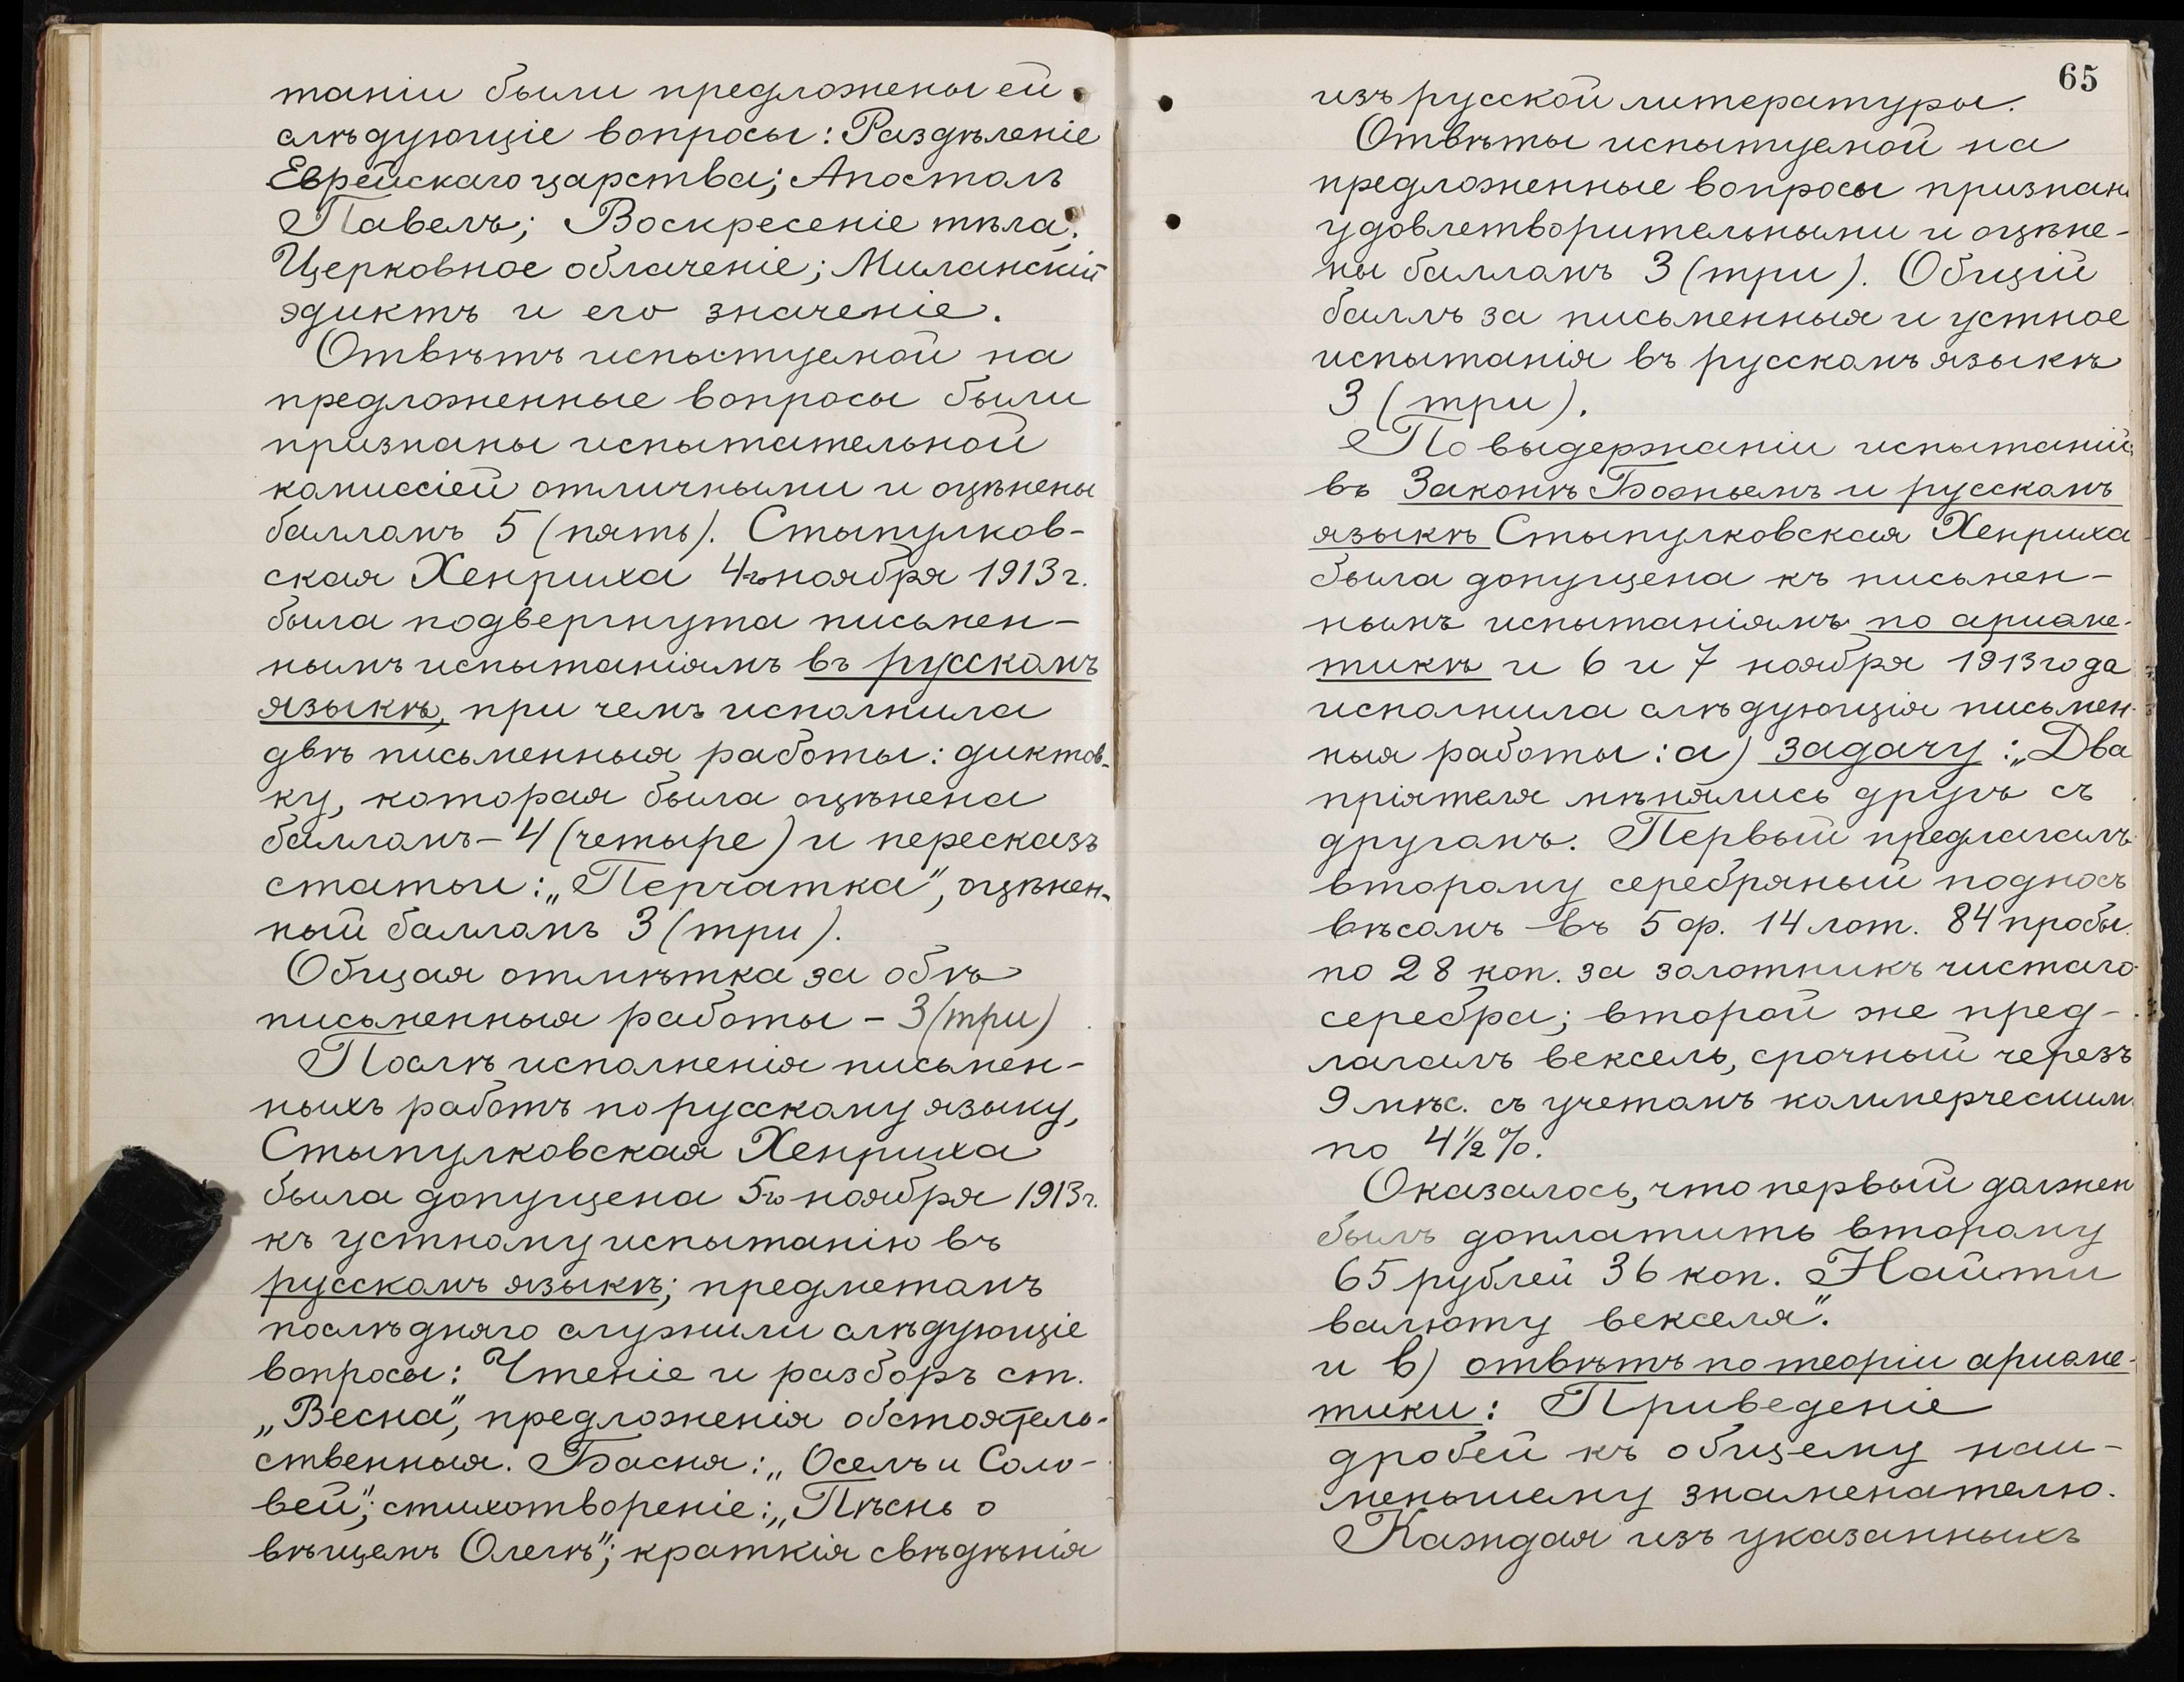 таніи были предложены ей
слѣдующіе вопросы: Раздѣленіе
Еврейскаго царства; Апостолъ
Павелъ; Воскресеніе тѣла;
Церковное облаченіе; Миланскій
эдиктъ и его значеніе.
Отвѣтъ испытуемой на
предложенные вопросы были
признаны испытательной
комиссіей отличными и оцѣнены
балломъ 5 (пять). Стыпулков-
ская Хенриха 4го ноября 1913 г.
была подвергнута письмен-
нымъ испытаніямъ въ русскомъ
языкѣ, при чемъ исполнила
двѣ письменныя работы: диктов-
ку, которая была оцѣнена
балломъ – 4 (четыре) и пересказъ
статьи: „Перчатка", оцѣнен-
ный балломъ 3 (три).
Общая отмѣтка за обѣ
письменныя работы – 3 (три)
Послѣ исполненія письмен-
ныхъ работъ по русскому языку,
Стыпулковская Хенриха
была допущена 5го ноября 1913 г.
къ устному испытанію въ
русскомъ языкѣ; предметомъ
послѣдняго служили слѣдующіе
вопросы: Чтеніе и разборъ ст.
„Весна", предложенія обстоятель-
ственныя. Басня: „Оселъ и Соло-
вей"; стихотвореніе: „Пѣснь о
вѣщемъ Олегѣ"; краткія свѣдѣнія
65
изъ русской литературы.
Отвѣты испытуемой на
предложенные вопросы признаны
удовлетворительными и оцѣне-
ны балломъ 3 (три). Общій
баллъ за письменныя и устное
испытанія въ русскомъ языкѣ
3 (три).
По выдержаніи испытаній
въ Законѣ Божьемъ и русскомъ
языкѣ Стыпулковская Хенриха
была допущена къ письмен-
нымъ испытаніямъ по ариѳме-
тикѣ и 6 и 7 ноября 1913 года
исполнила слѣдующія письмен-
ныя работы: а) задачу: „Два
пріятеля мѣнялись другъ съ
другомъ. Первый предлагалъ
второму серебряный подносъ
вѣсомъ въ 5 ф. 14 лот. 84 пробы.
по 28 коп. за золотникъ чистаго
серебра; второй же пред-
лагалъ вексель, срочный черезъ
9 мѣс. съ учетомъ коммерческим
по 4 1/2 %.
Оказалось, что первый должен
былъ доплатить второму
65 рублей 36 коп. Найти
валюту векселя".
и в) отвѣтъ по теоріи ариѳме-
тики: Приведеніе
дробей къ общему наи-
меньшему знаменателю.
Каждая изъ указанныхъ